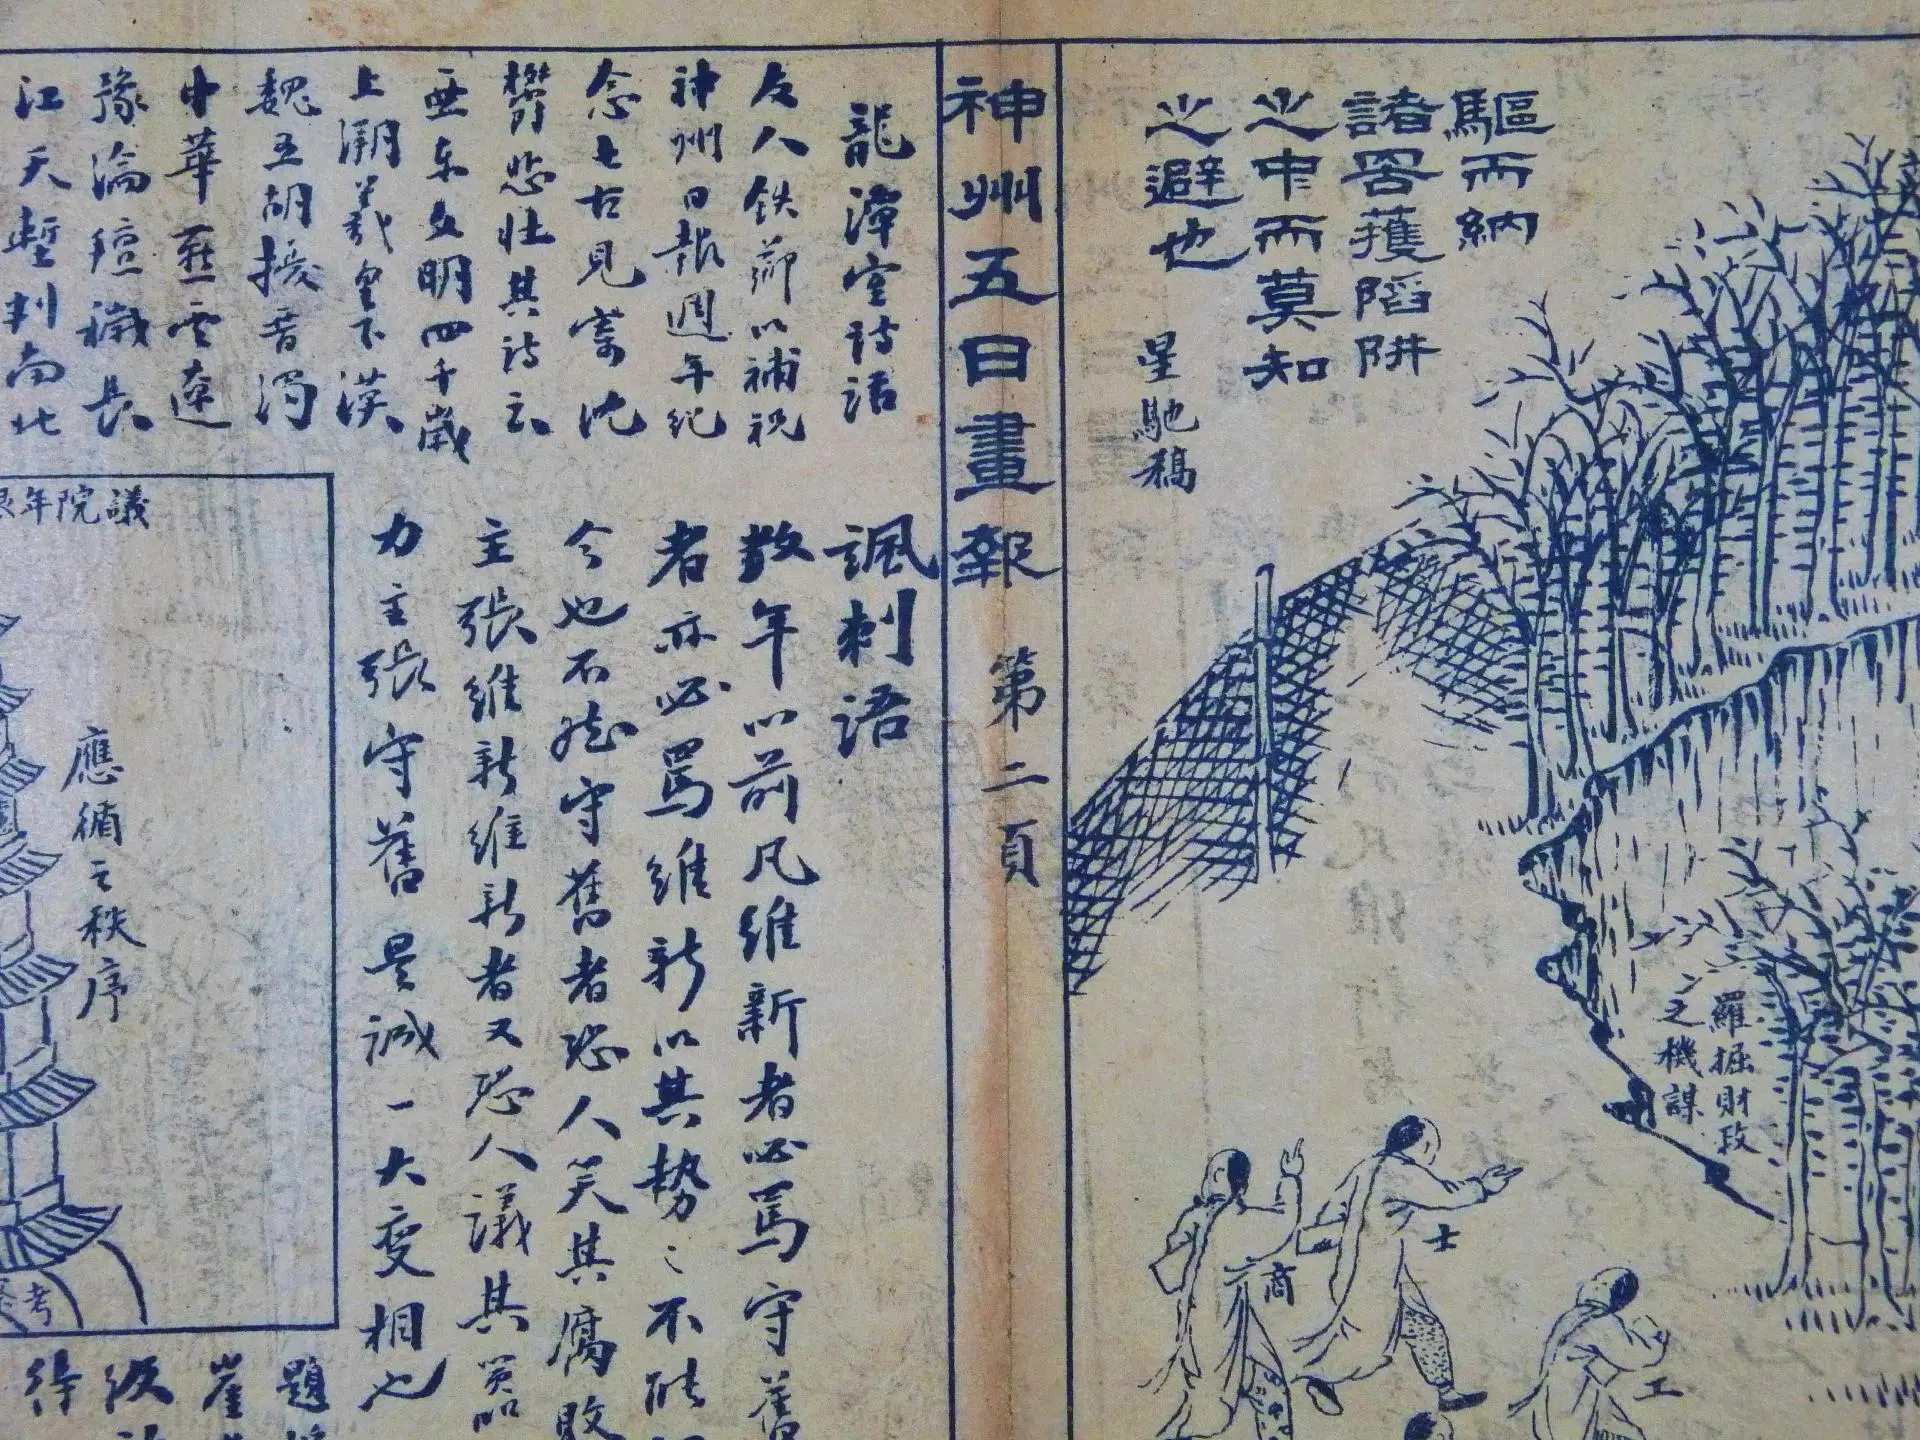 驅而納
諸罟擭陷阱
之中而莫知
之避也
星馳稿
羅掘財政
之機謀
士
商
工
神州五日畫報
第二頁
龍潭室詩話
友人鉄茆以補祝
神州日報週年紀
念七古見寄沈
鬱悲壯其詩云
亜东文明四千歲
上溯羲皇下漢
魏五胡擾晉濁
中華燕雲遼
豫淪羶穢長
江天塹判南北
諷刺語
数年以前凡維新者必罵守舊
者亦必罵維新以其勢〻不能
今也不然守舊者恐人笑其腐敗
主張維新維新者又恐人議其
力主張守舊是誠一大变相也
議院年限
應循之秩序
考
題
崔
待